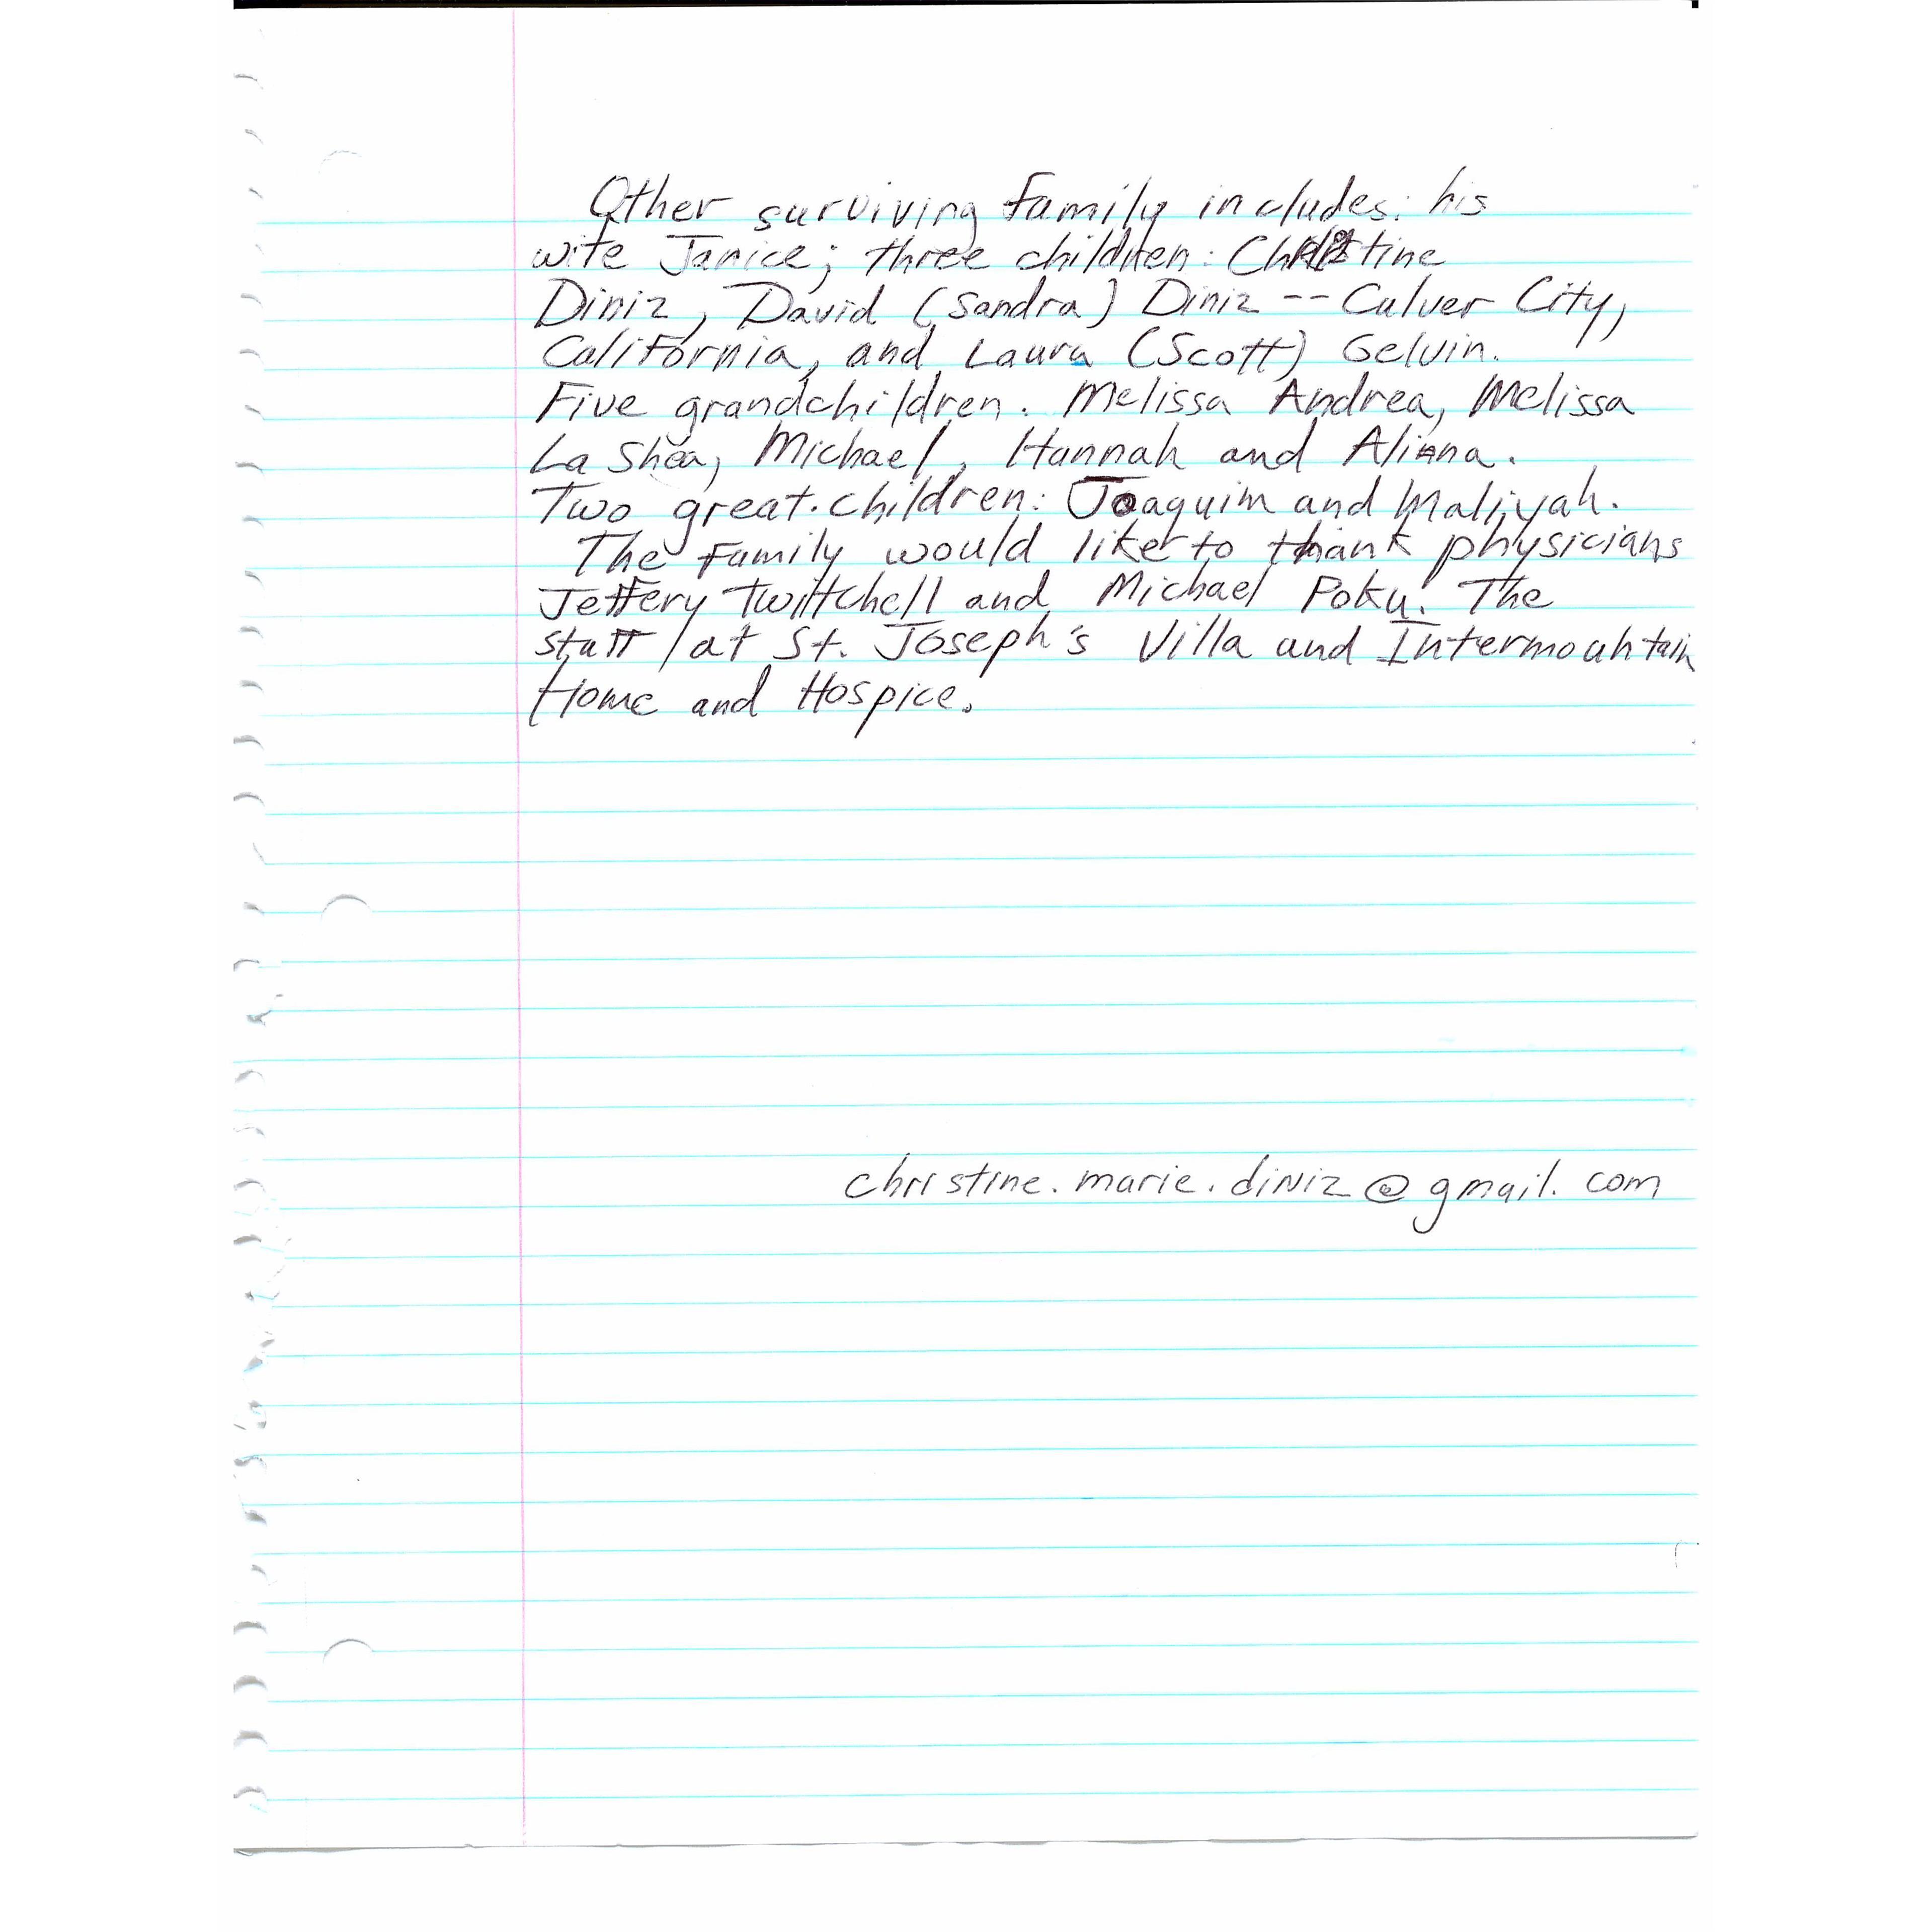 Other surviving family includes: his
wife Janice; three children: Christine
Diniz, David (Sandra) Diniz -- Culver City,
California, and Laura (Scott) Gelvin.
Five grandchildren. Melissa Andrea, Melissa
La Shea, Michael, Hannah and Alinna.
Two great.children: Joaquim and Maliyah.
The family would like to thank physicians
Jeffery Twittchell and Michael Poku. The
staff at St. Joseph's Villa and Intermountain
Home and Hospice.
christine.marie.diniz@gmail.com